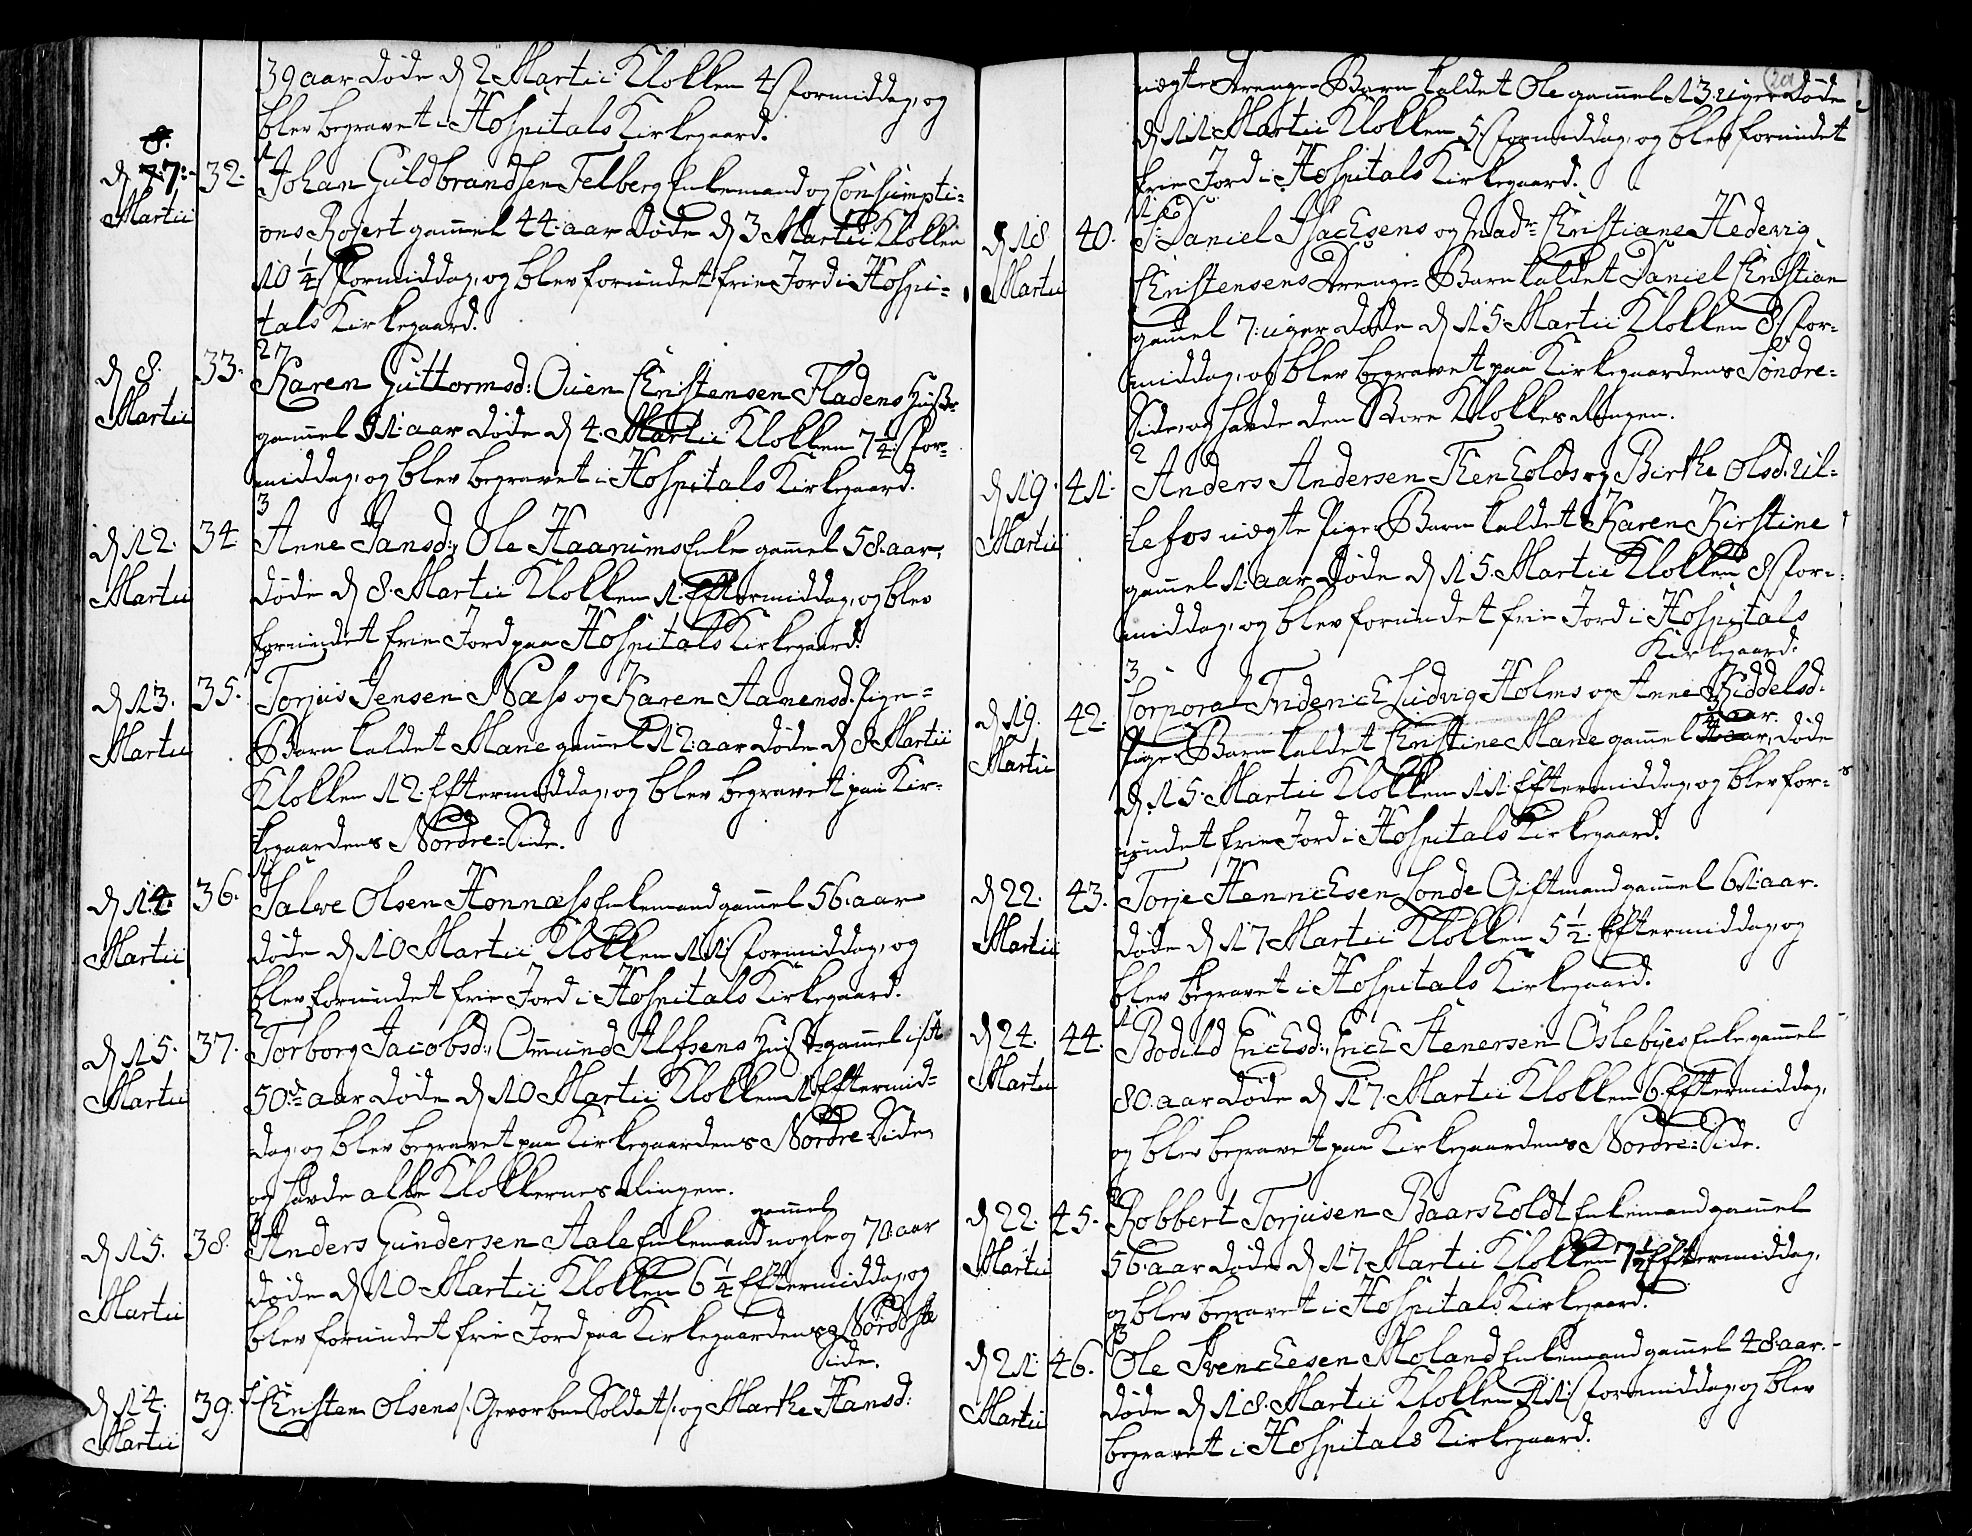 39 aar døde d 2 Martii Klokken 4 Formiddag, og
blev begravet i Hospitals Kirkegaard.
d 7: Martii 32. Johan Guldbrandsen Felberg Enkemand og Consumpti=
ons Rojert gam̄el 44: aar døde d 3 Martii Klokken
10 1/4 Formiddag, og blev forundet frie Jord i Hospi=
tals Kirkegaard.
d 8. Martii 33. Karen Guttormsd: Ouen Christensen Fladens Hustr
gam̄el 51: aar døde d 4. Martii Klokken 7 1/4 For=
middag, og blev begravet i Hospitals Kirkegaard.
3
d 12. Martii 34 Anne Jansd: Ole Haanims Enke gam̄el 58. aar,
døde d 8. Martii Klokken 1. Eftermiddag, og blev
forundet frie Jord paa Hospitals Kirkegaard.
d 13. Martii 35. Torjus Jensen Næss og Karen Aanensd. Pige=
Barn kaldet Mane gam̄el 12: aar døde d 8 Martii
Klokken 12 Eftermiddag, og blev begravet paa Kir=
kegaardens Nordre=Side.
1
d 14. Martii 36. Salve Olsen Honnæss Enkemand gam̄el 56. aar
døde d 10 Martii Klokken 11 Formiddag, og
blev forundet frie Jord i Hospitals Kirkegaard.
2
d 15. Martii 37. Torborg Jacobsd:, Om̄und Alfsens Hustr gam̄el i sit
50de aar døde d 10 Martii Klokken 1 Eftermid=
dag, og blev begravet paa Kirkegaardens Nordre=Side,
og havde alle Klokkernes Ringen.
gam̄el
3
d 15. Martii 38. Anders Gundersen Aale Enkemand nogle og 70. aar
døde d 10 Martii Klokken 6 1/4 Eftermiddag, og
blev forundet frie Jord paa Kirkegaardens Nordste
Side.
d 14. Martii 39. Christen Olsens /: Gevorben Soldat :/ og Marthe Hansd:
201
uægte Drenge=Barn kaldet Ole gam̄el 13. uger døde
d 11 Martii Klokken 5. Formiddag, og blev forundet
frie Jord i Hospitals Kirkegaard.
1
d 18 Martii 40. S: Daniel Isachsens og Mad: Christiane Hedevig
Christensens Drenge=Barn kaldet Daniel Christian
gam̄el 7: uger døde d 15: Martii Klokken 8 For=
middag, og blev begravet paa Kirkegaardens Søndre=
Side, og havde den Store Klokkes Ringen.
2
d 19. Martii 41. Anders Andersen Fenholds og Birthe Olsd. Ul=
tefos uægte Pige=Barn kaldet Karen Kirstine
gam̄el 1: aar døde d 15. Martii Klokken 8 For=
middag, og blev forundet frie Jord i Hospitals
Kirkegaard.
3
d 19. Martii 42. Corporal Friderich Ludvig Holms og Anne Kiddelsd.
3 aar.
Pige=Barn kaldet Christine Mane gam̄el døde
d 15. Martii Klokken 11 Eftermiddag, og blev for=
undet frie Jord i Hospitals Kirkegaard.
d 22. Martii 43. Torje Henrichsen Londe Giftmand gam̄el 61: aar.
døde d 17 Martii Klokken 5 1/2. Eftermiddag, og
blev begravet i Hospitals Kirkegaard.
1
d 24. Martii 44. Bodild Erichsd:, Erich Stenersen Oslebyes Enke gam̄el
80. aar døde d 17. Martii Klokken 6. Eftermiddag,
og blev begravet paa Kirkegaardens Nordre=Side.
2
d 22. Martii 45. Robbert Torjusen Baarsholdt Enkemand gam̄el
56. aar døde d 17 Martii Klokken 7 1/2 Eftermiddag,
og blev begravet i Hospitals Kirkegaard.
3
d 21. Martii 46. Ole Svenchesen Moland Enkemand gam̄el 48. aar.
døde d 18. Martii Klokken 11 Formiddag, og blev
begravet i Hospitals Kirkegaard.